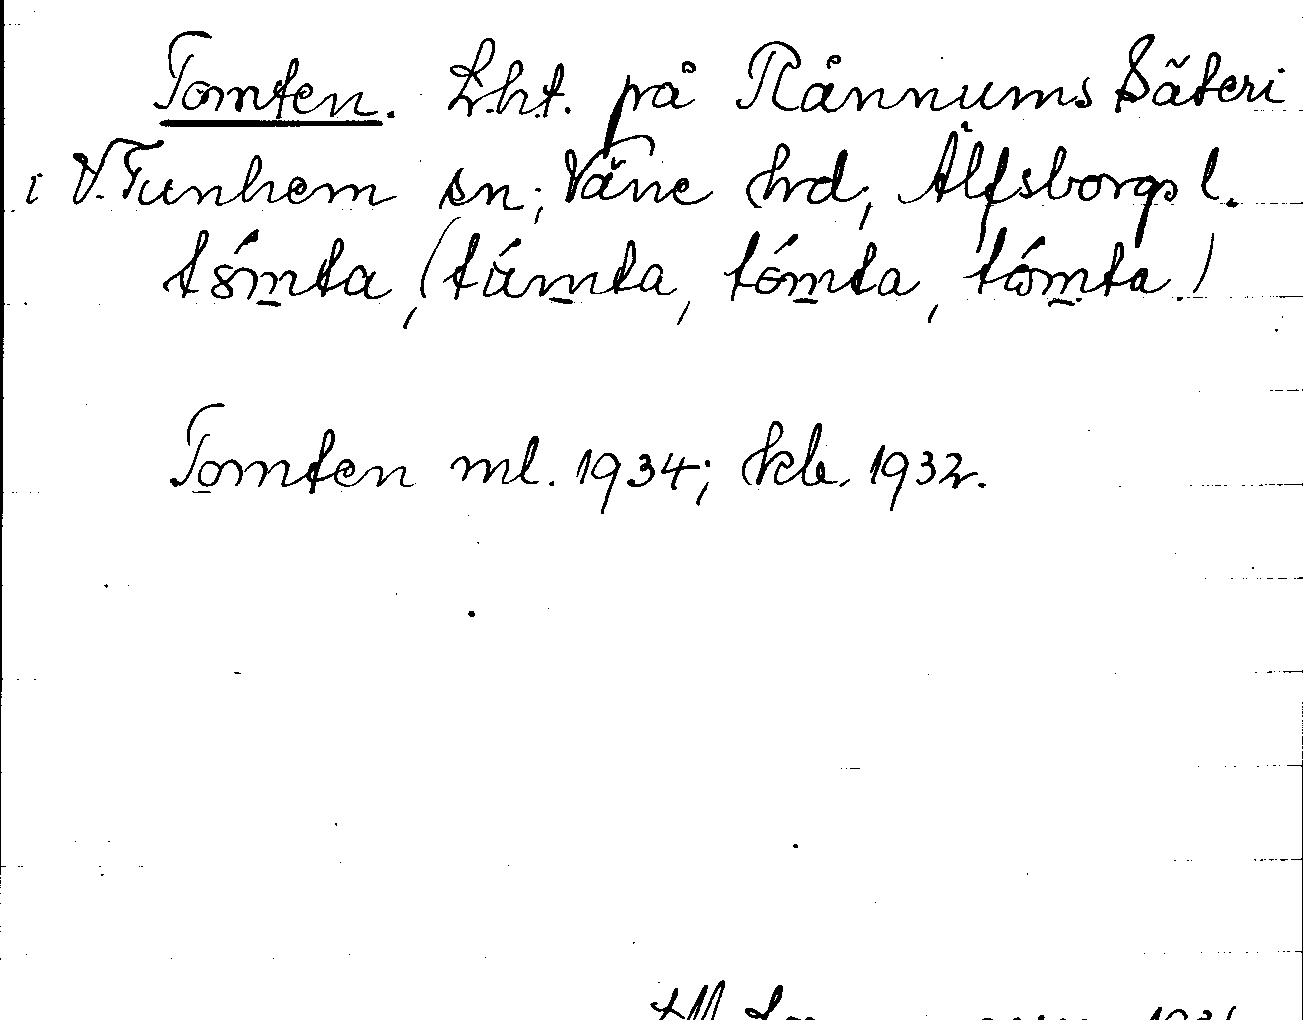 Tomten. Lht. på Rånnums Säteri
i V. Tunhem sn; Väne hrd, Älfsborgs l.
tómta, (támta, tómta, tómta.)
Tomten ml. 1934; kb. 1932.